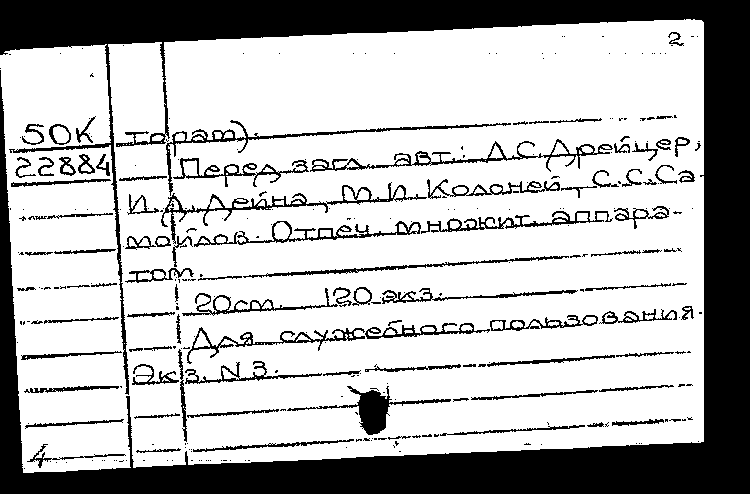 2
50К торат).
22884 Перед загл. авт.: Л.С. Дрейцер,
И.Д. Дейна, М.И. Колоней, С.С. Са-
мойлов. Отпеч. множит. аппара-
том.
20 см. 120 экз.
Для служебного пользования.
Экз. N 3.
4